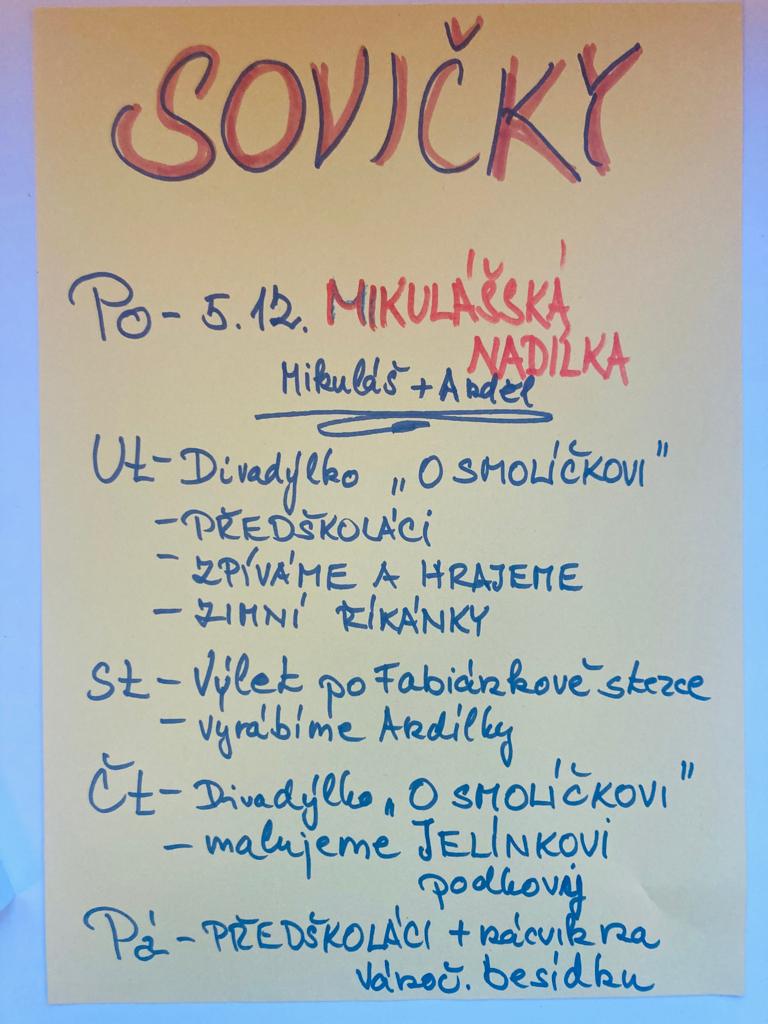 SOVIČKY
Po - 5.12. MIKULÁŠSKÁ
NADÍLKA
Mikuláš + Anděl
Út - Divadýlko „O SMOLÍČKOVI"
- PŘEDŠKOLÁCI
- ZPÍVÁME A HRAJEME
- ZIMNÍ ŘÍKÁNKY
St - Výlet po Fabiánkově stezce
- vyrábíme Andílky
Čt - Divadýlko „O SMOLÍČKOVI"
- malujeme JELÍNKOVI
podkovy
Pá - PŘEDŠKOLÁCI + nácvik na
vánoč. besídku